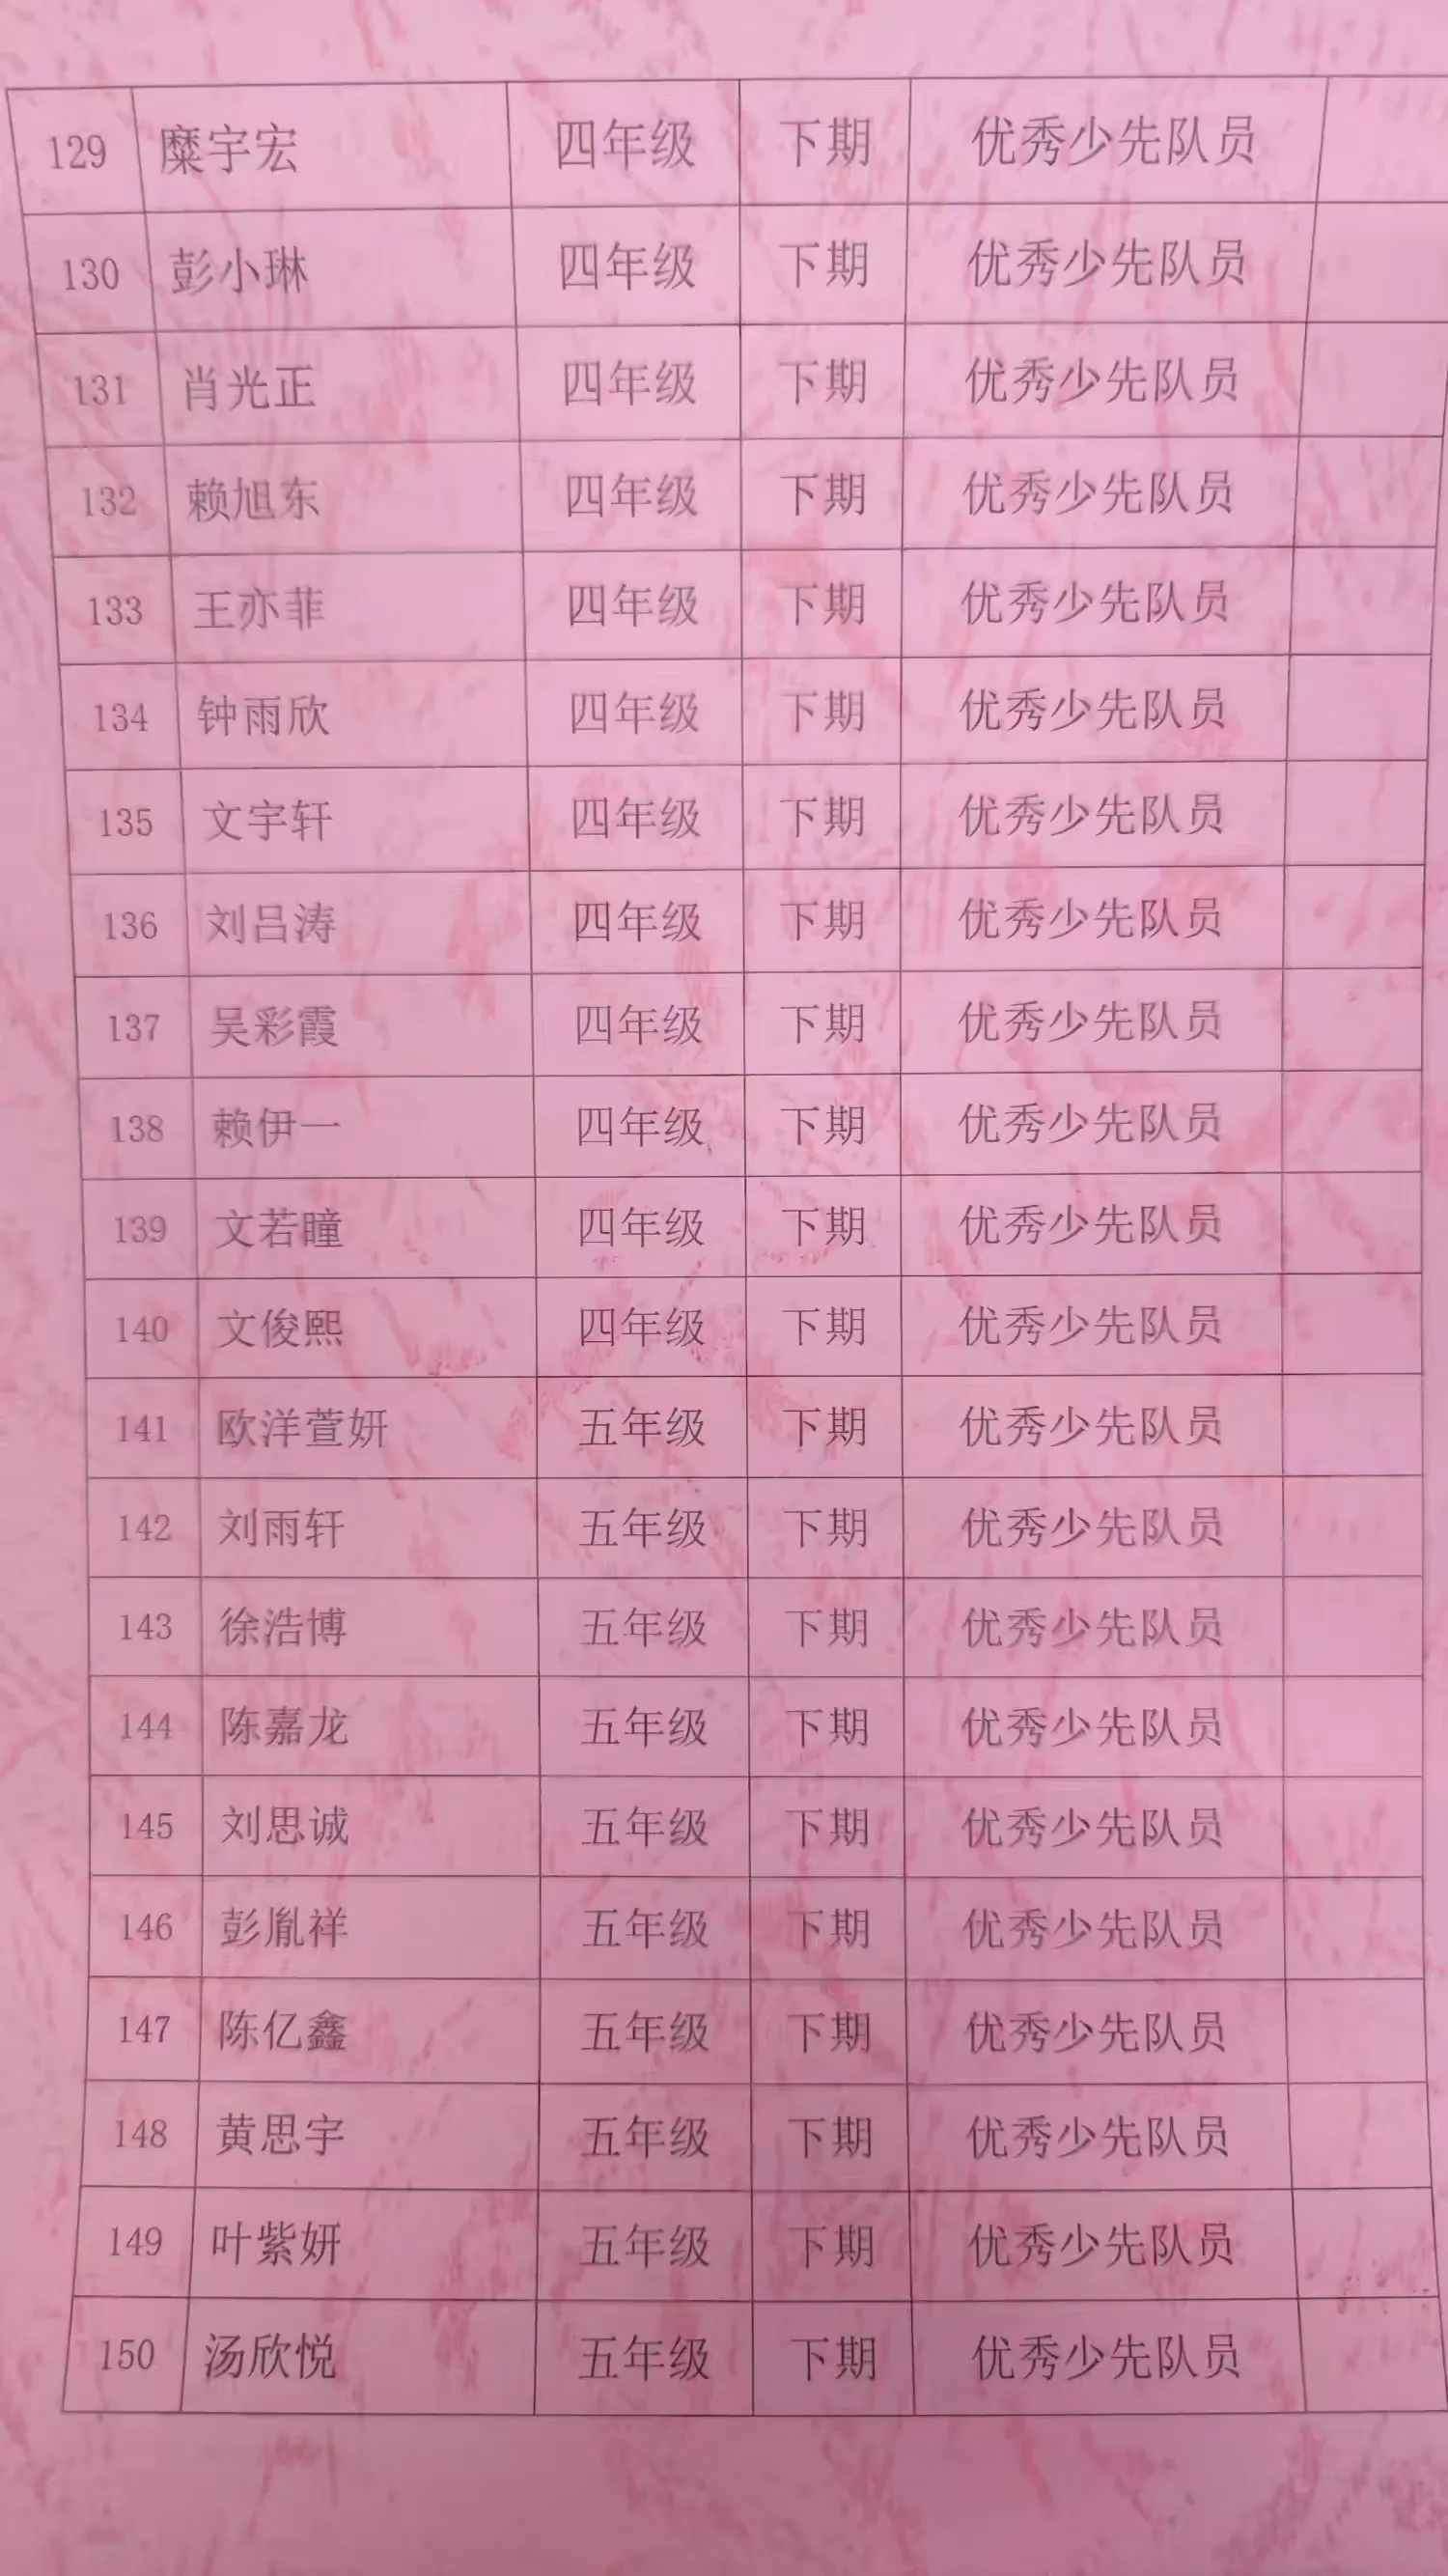 129 糜宇宏 四年级 下期 优秀少先队员
130 彭小琳 四年级 下期 优秀少先队员
131 肖光正 四年级 下期 优秀少先队员
132 赖旭东 四年级 下期 优秀少先队员
133 王亦菲 四年级 下期 优秀少先队员
134 钟雨欣 四年级 下期 优秀少先队员
135 文宇轩 四年级 下期 优秀少先队员
136 刘吕涛 四年级 下期 优秀少先队员
137 吴彩霞 四年级 下期 优秀少先队员
138 赖伊一 四年级 下期 优秀少先队员
139 文若瞳 四年级 下期 优秀少先队员
140 文俊熙 四年级 下期 优秀少先队员
141 欧洋萱妍 五年级 下期 优秀少先队员
142 刘雨轩 五年级 下期 优秀少先队员
143 徐浩博 五年级 下期 优秀少先队员
144 陈嘉龙 五年级 下期 优秀少先队员
145 刘思诚 五年级 下期 优秀少先队员
146 彭胤祥 五年级 下期 优秀少先队员
147 陈亿鑫 五年级 下期 优秀少先队员
148 黄思宇 五年级 下期 优秀少先队员
149 叶紫妍 五年级 下期 优秀少先队员
150 汤欣悦 五年级 下期 优秀少先队员